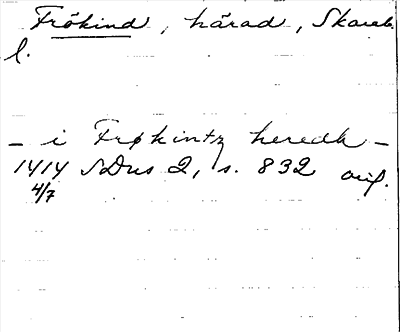 Frökind, härad, Skarab.
l.
- i Frøkintz heredh -
1414 SDns 2, s. 832 orig.
4/7